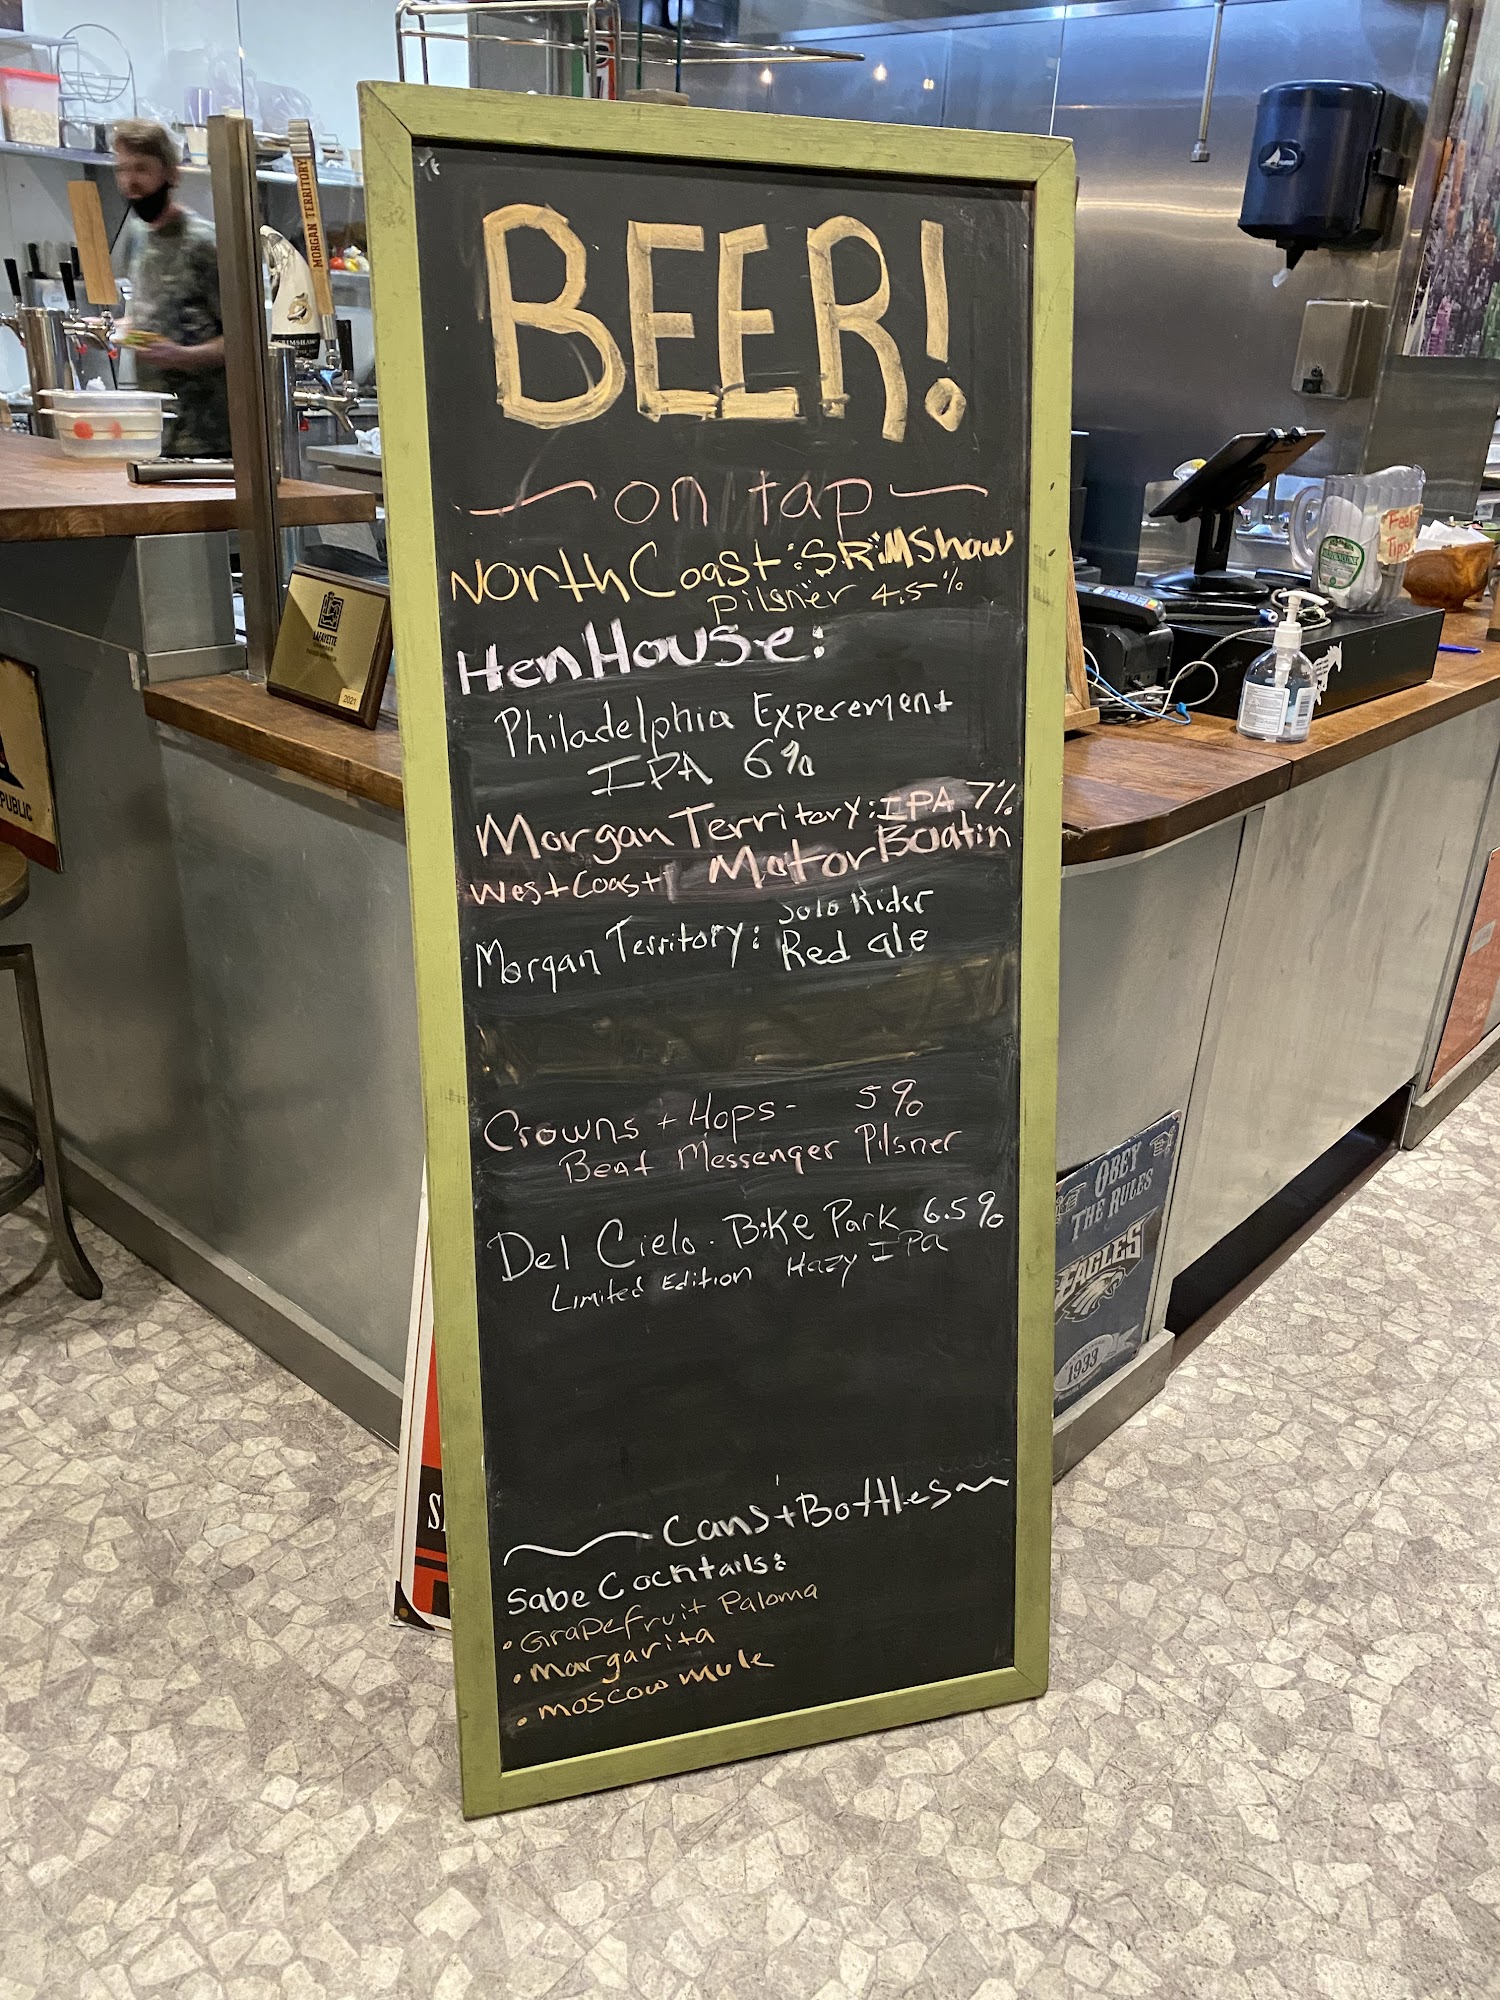 BEER!
on tap
North Coast: SRiMShaw
Pilsner 4.5%
HenHouse:
Philadelphia Experement
IPA 6%
Morgan Territory: IPA 7%
West Coast MotorBoatin
Morgan Territory: Solo Rider
Red ale
Crowns + Hops- 5%
Beat Messenger Pilsner
Del Cielo. Bike Park 6.5%
Limited Edition Hazy IPa
Cans + Bottles
Sabe Cocktails:
• Grapefruit Paloma
• Margarita
• Moscow Mule
MORGAN TERRITORY
LAFAYETTE
2021
PUBLIC
Feel
Tips
OBEY
THE RULES
EAGLES
1933